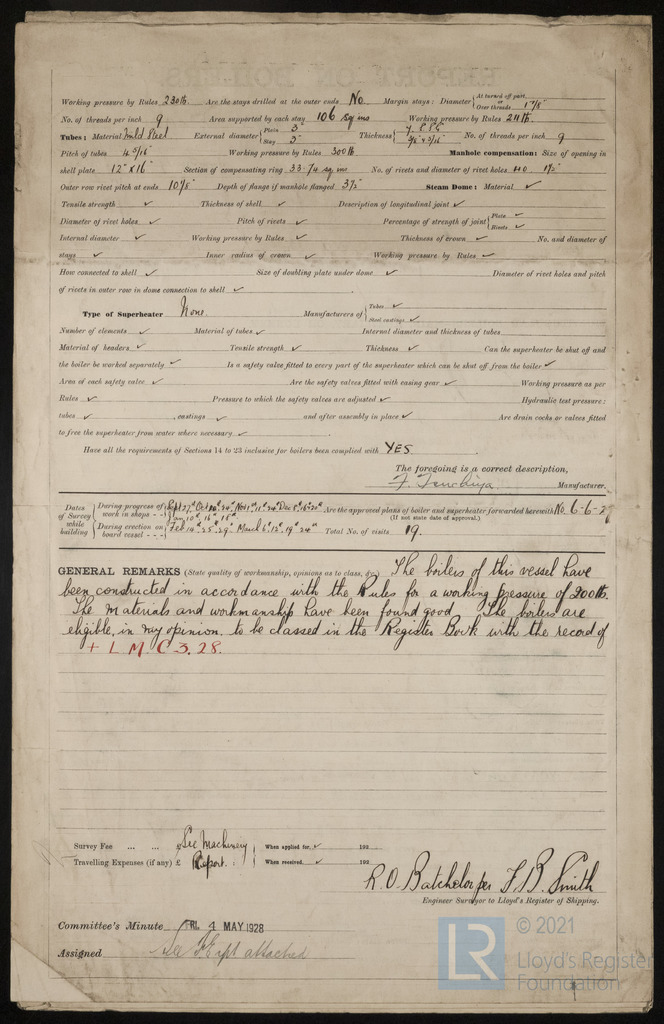 Working pressure by Rules 230 lb. Are the stays drilled at the outer ends No. Margin stays: Diameter { At turned off part, or Over threads 1 7/8"
No. of threads per inch 9 Area supported by each stay 106 sq ins Working pressure by Rules 211 lb.
Tubes: Material Steel External diameter { Plain 3" Stay 3" Thickness { No. of threads per inch 9
Pitch of tubes 4 5/16" Working pressure by Rules 300 lb Manhole compensation: Size of opening in
shell plate 12" x 16" Section of compensating ring 33.74 sq ins No. of rivets and diameter of rivet holes 40 1½"
Outer row rivet pitch at ends 10 1/8" Depth of flange if manhole flanged 3½" Steam Dome: Material ✓
Tensile strength ✓ Thickness of shell ✓ Description of longitudinal joint ✓
Diameter of rivet holes ✓ Pitch of rivets ✓ Percentage of strength of joint { Plate ✓ Rivets ✓
Internal diameter ✓ Working pressure by Rules ✓ Thickness of crown ✓ No. and diameter of
stays ✓ Inner radius of crown ✓ Working pressure by Rules ✓
How connected to shell ✓ Size of doubling plate under dome ✓ Diameter of rivet holes and pitch
of rivets in outer row in dome connection to shell ✓
Type of Superheater None. Manufacturers of { Tubes ✓ Steel castings ✓
Number of elements ✓ Material of tubes ✓ Internal diameter and thickness of tubes
Material of headers ✓ Tensile strength ✓ Thickness ✓ Can the superheater be shut off and
the boiler be worked separately ✓ Is a safety valve fitted to every part of the superheater which can be shut off from the boiler ✓
Area of each safety valve ✓ Are the safety valves fitted with easing gear ✓ Working pressure as per
Rules ✓ Pressure to which the safety valves are adjusted ✓ Hydraulic test pressure:
tubes ✓, castings ✓ and after assembly in place ✓ Are drain cocks or valves fitted
to free the superheater from water where necessary ✓
Have all the requirements of Sections 14 to 23 inclusive for boilers been complied with YES
The foregoing is a correct description,
F. Tsuchiya Manufacturer.
Dates of Survey while building { During progress of work in shops - - } Are the approved plans of boiler and superheater forwarded herewith No. 6-6-27
(If not state date of approval.)
During erection on board vessel - - - } Feb 14" 25" 29" March 6" 12" 19" 24" Total No. of visits 19.
GENERAL REMARKS (State quality of workmanship, opinions as to class, &c.) The boilers of this vessel have
been constructed in accordance with the Rules for a working pressure of 200 lb.
The materials and workmanship have been found good. The boilers are
eligible, in my opinion, to be classed in the Register Book with the record of
+ L M C 3. 28.
Survey Fee ... ... £ See Machinery When applied for, ✓ 192
Travelling Expenses (if any) £ Report. When received, ✓ 192
R. O. Batchelor per F. B. Smith
Engineer Surveyor to Lloyd's Register of Shipping.
Committee's Minute FRI. 4 MAY 1928
Assigned See attached
© 2021
LR
Lloyd's Register
Foundation